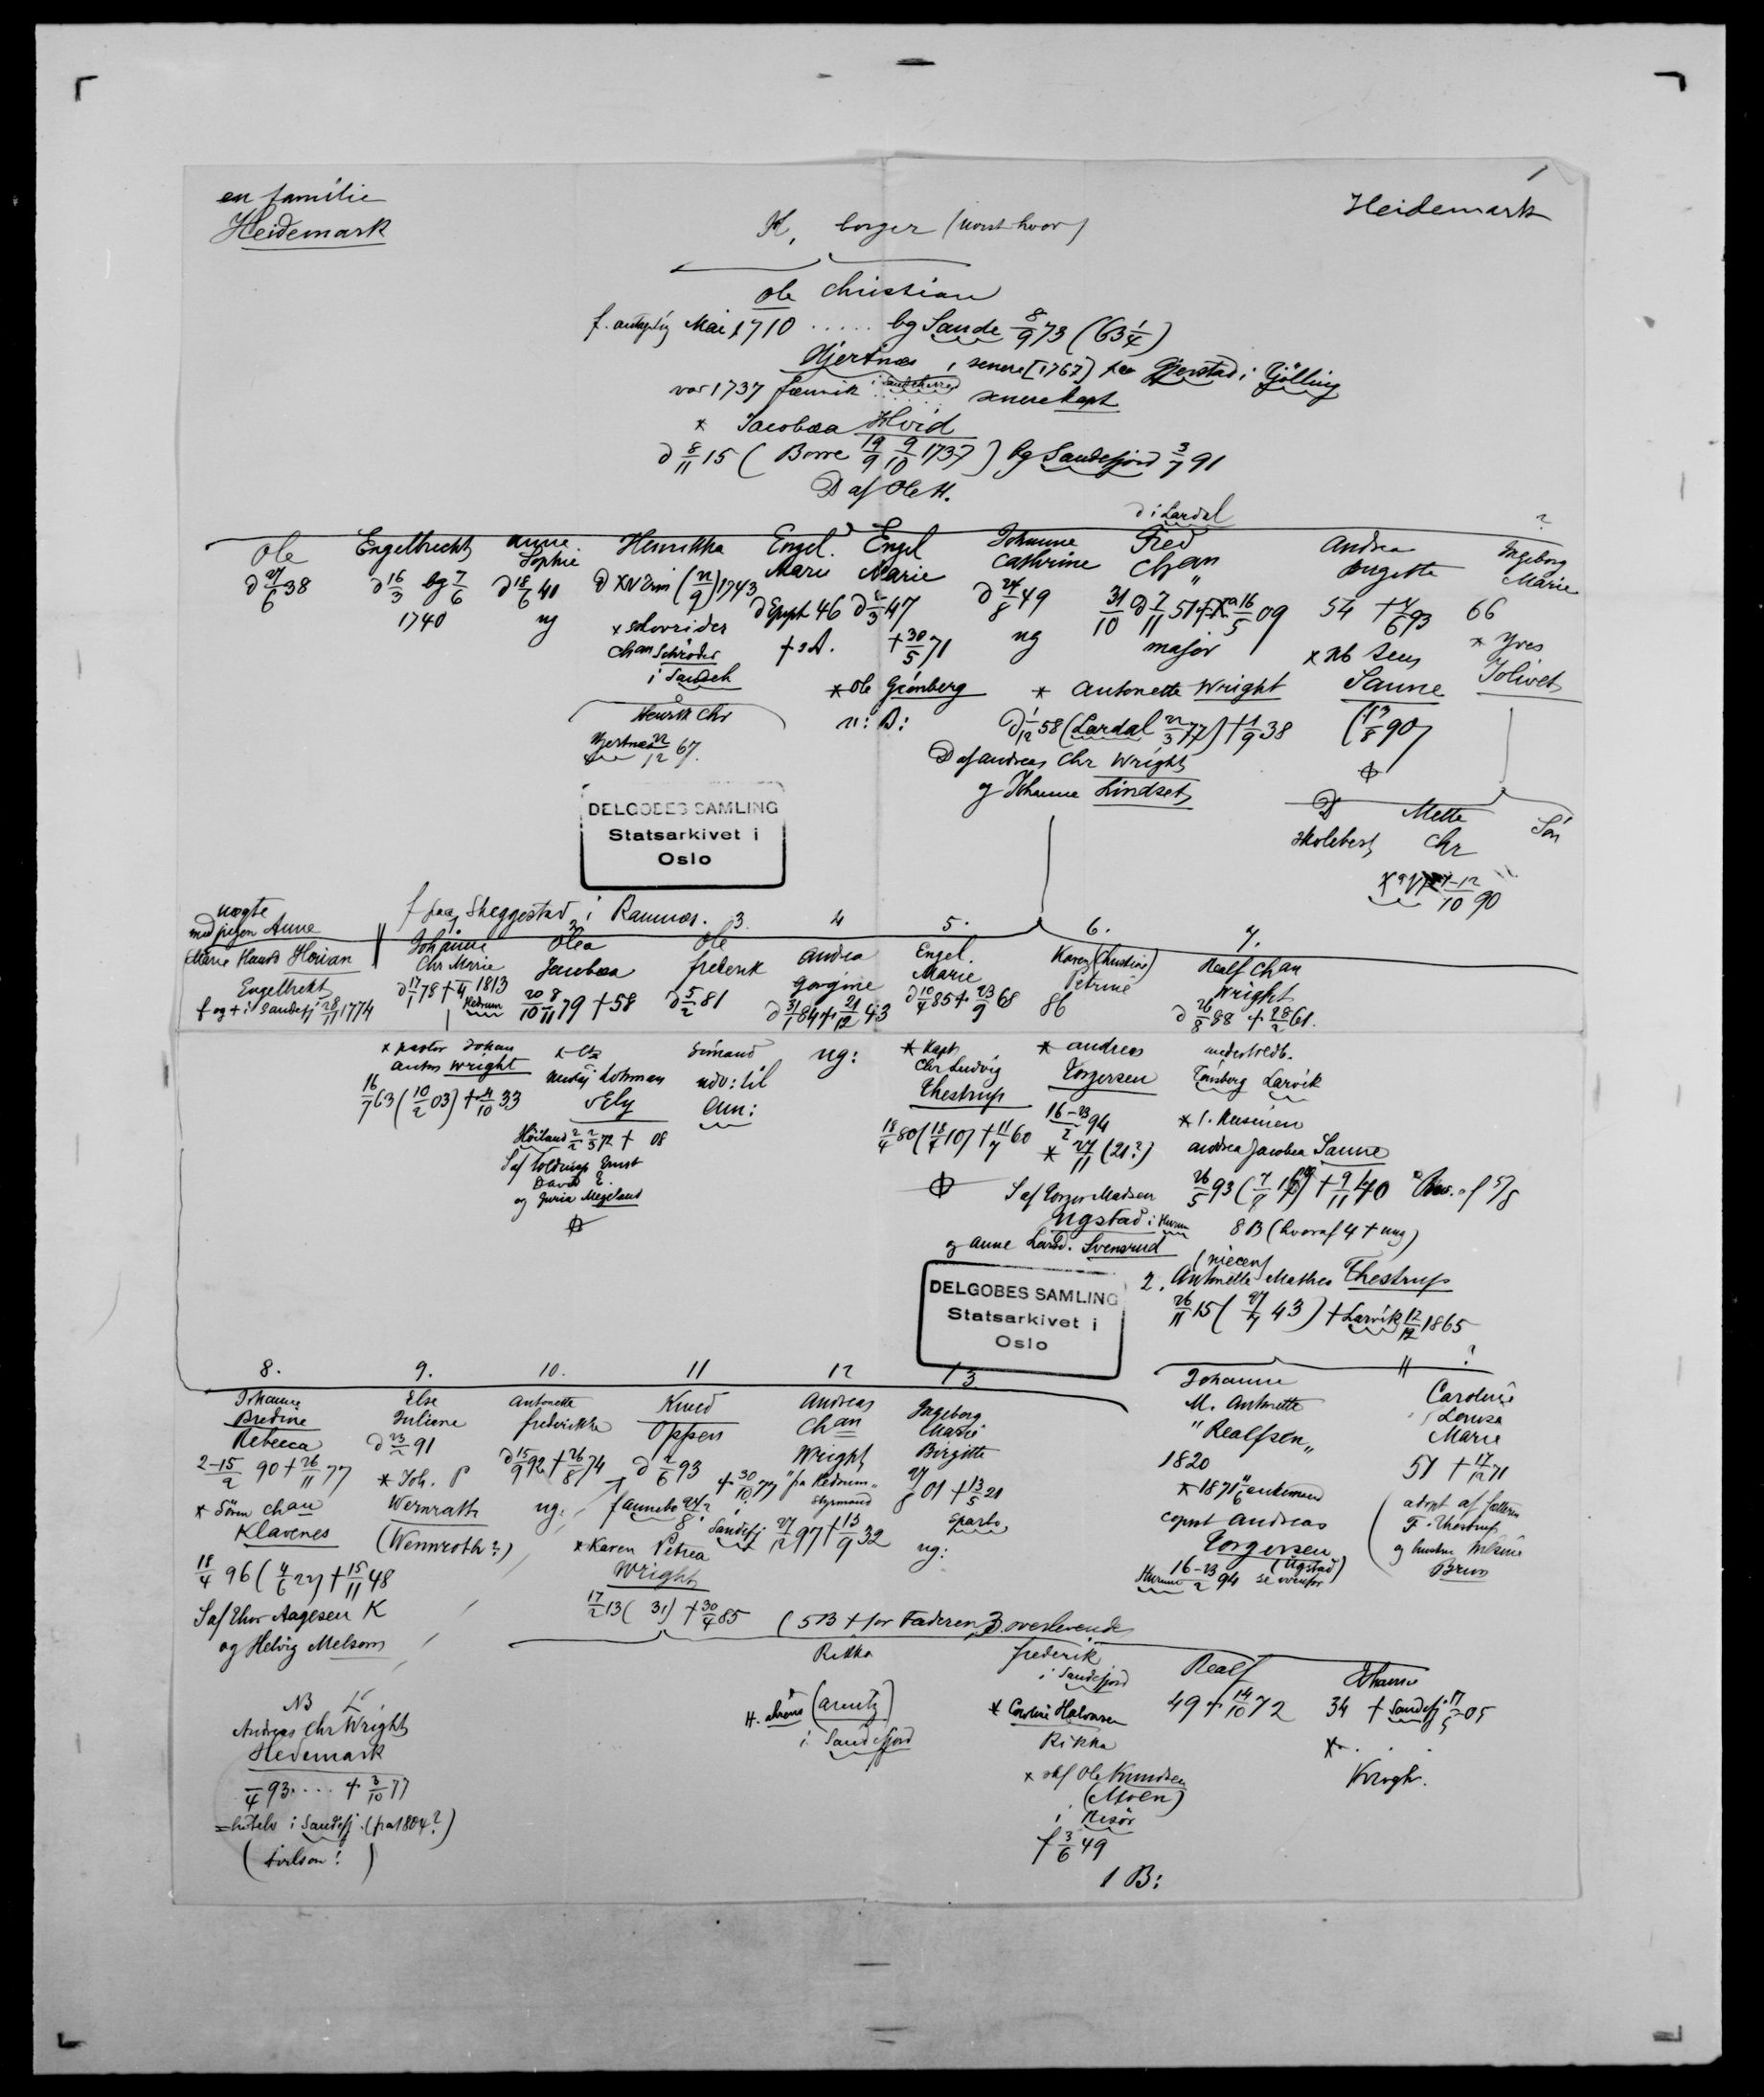 en familie
Heidemark
1
Heidemark
K, borger (uvist hvor)
Ole Christian
f. Mai 1710 ..... bg Sande 8/9 73 (63 1/4)
Hjertnæs, senere [1767] paa Gjerstad i Tjølling
var 1737 fænrik ...... senere kapt
* Jacobæa Hvid
d 8/11 15 (Borre 19/9 9/10 1737) bg Sandefjord 3/7 91
D af Ole H.
Ole
d 27/6 38
Engelbrecht
d 16/3 bg 7/6
1740
Anne
Sophie
d 18/6 41
ug
Henrikka
1743
* skovrider
Chan Schrøder
i Sandeh
Henrik Chr
Hjertnæs 22/12 67.
Engel.
Marie
46
Engel
Marie
47
+ 30/5 71
* Ole Grønberg
u: B:
Johanne
Cathrine
d 24/8 49
ug
d i Lardal
Fred
Chan
31/10 d 7/11 51 16/5 09
major
* Antonette Wright
d 1/12 58 (Lardal 22/3 77) + 1/9 38
D af Andreas Chr Wright
og Johanne Lindset
Andrea
Birgitte
54 + 4/6 93
Sanne
(17/8 90)
?
Ingeborg
Marie
66
* Yves
Jolivet
D
Mette
Chr
Søn
DELGOBES SAMLING
Statsarkivet i
Oslo
uægte
med pigen Anne
Engelbrekt
f og + i Sandefj 28/11 1774
f paa Skeggestad i Ramnæs.
Johanne
Chr Marie
d 17/1 78 + 1813
Hedrum
* pastor Johan
Anton Wright
16/7 63 (10/2 03) + 4/10 33
2
Olea
Jacobæa
20/10 8/11 79 + 58
Ely
Høiland
David E.
og Megeland
3.
Ole
Frederik
d 5/2 81
Sømand
udv: til
Am:
4
Andrea
Gurgine
d 31/1 84 + 21/12 43
ug:
5.
Engel.
Marie
d 10/4 85 + 23/9 68
* Kapt
Chr Ludvig
Thestrup
18/4 80 (18/4 10) + 11/7 60
6.
Karen (Christine)
Petrine
86
* Andreas
Torgersen
16-23/2 94
* 27/11 (21?)
S af Torger Madsen
Ugstad i Hurum
og Anne Larsd. Svensrud
7.
Realf Chan
Wright
d 26/8 88 + 28/2 61.
Tønsberg Larvik
* 1. kusinen
Andrea Jacobea Sanne
26/5 93 + 9/11 40
8 B (hvoraf 4 + ung)
(niecen)
2. Antonette Mathea Thestrup
26/11 15 (27/7 43) + Larvik 12/12 1865
DELGOBES SAMLING
Statsarkivet i
Oslo
8.
Johanne
Bredine
Rebecca
2-15/2 90 + 26/11 77
* Søren Chan
Klavenes
18/4 96 (4/6 22) + 15/11 48
S af Thor Aagesen K
og Helvig Melsom
9.
Else
Juliane
d 23/2 91
* Joh. P
Wernrath
(Wennroth?)
10.
Antonette
Frederikke
d 15/9 92 + 26/8 74
ug.
11
Knud
Oppen
d 2/6 93
+ 30/10 77
* Karen Petrea
Wright
17/2 13 ( 31) + 30/4 85
12
Andreas
Chan
Wright
"fra Hedrum"
Styrmand
Sandefj 27/12 97 + 13/9 32
13
Ingeborg
Marie
Birgitte
27/8 01 + 13/5 21
Sparbo
ug:
Johanne
M. Antonette
"Realfsen"
1820
* 1871 6 enkemand
Andreas
Torgersen
(Ugstad)
Hurum 16-23/2 94 se ovenfor
?
Caroline
Lovisa
Marie
51 + 17/12 71
(adopt af fætteren
F. Thestrup
og hustru
Bruun
(5 B + før Faderen, 3 overlevende
Rikka
(Arentz)
i Sandefjord
Frederik
i Sandefjord
* Caroline Halvorsen
Rikka
* skf Ole Knudsen
(Moen)
i Risør
f 3/6 49
1 B:
Realf
49 + 14/10 72
Johanne
34 + Sandefj 17/5 05
* . . .
Krogh.
NB
Andreas Chr Wright
Hedemark
/4 93 ... + 3/10 77
i Sandefj. (fra 1804?)